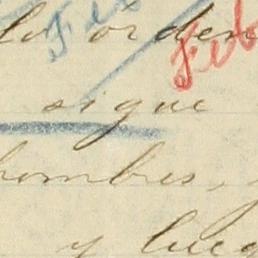 orden
Feb
sigue
hombres, y
y lueg